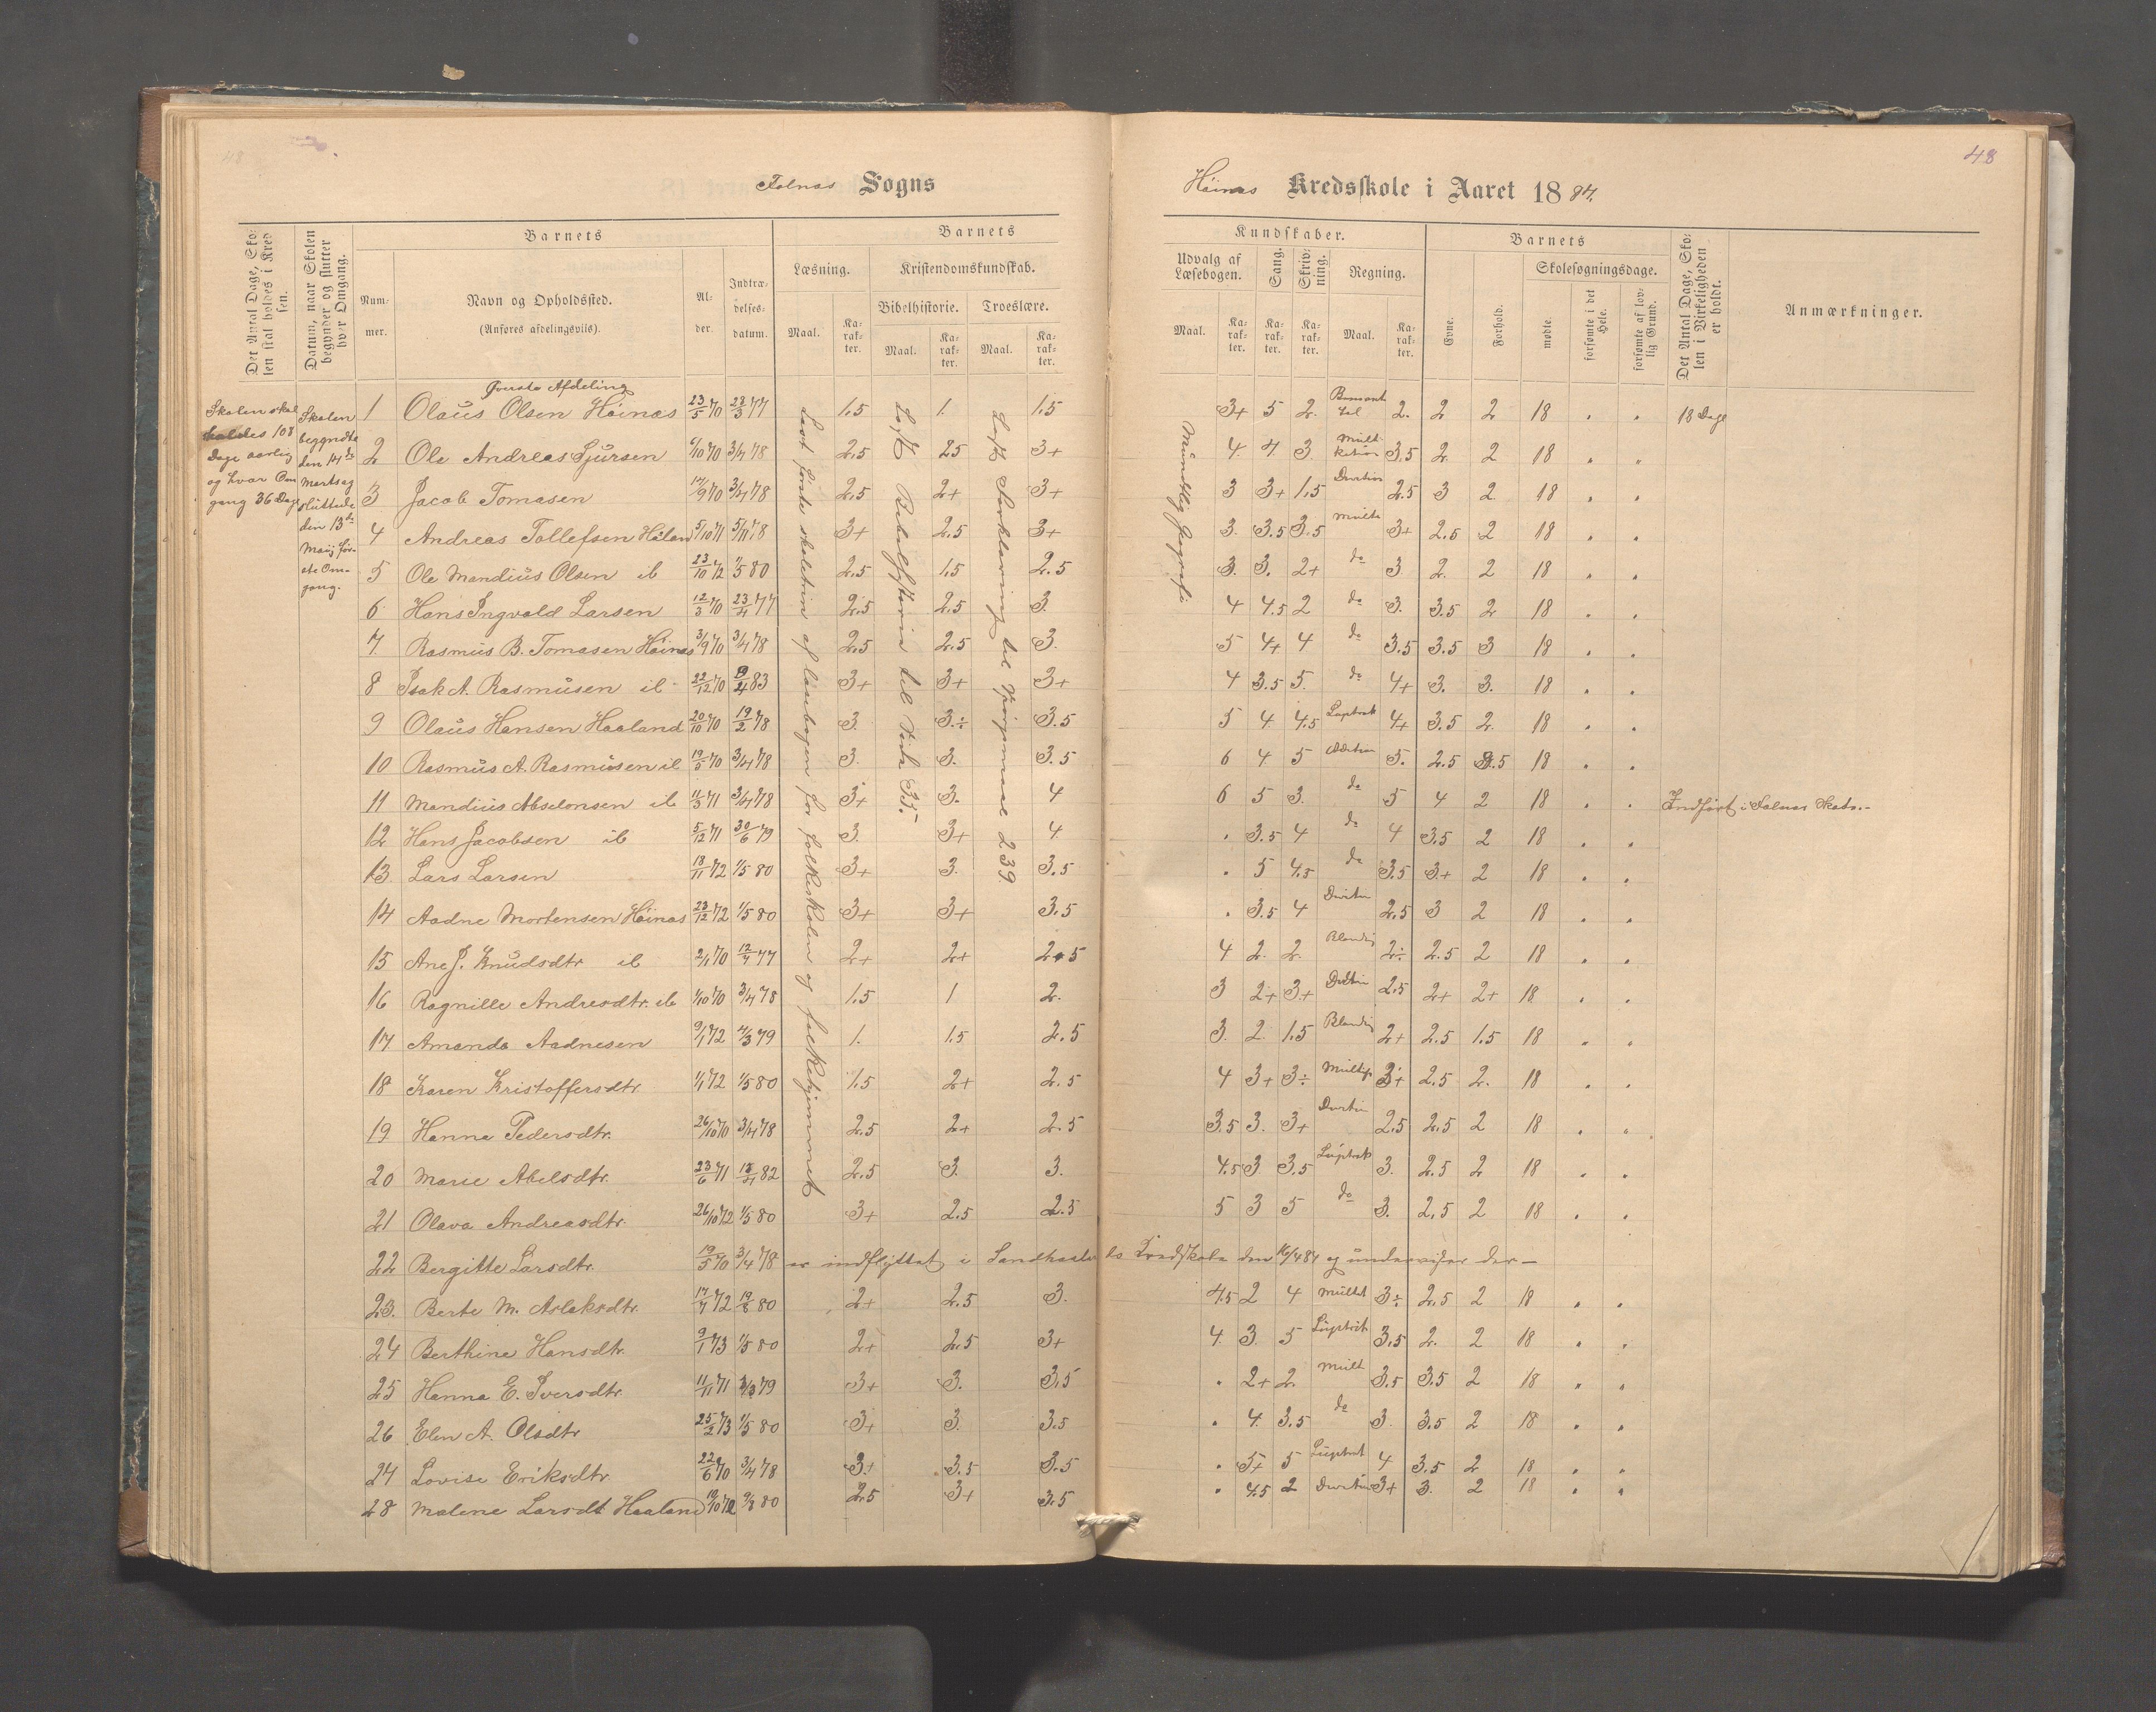 48
Falnes Sogns
Høines Kredsskole i Aaret 1884.
Det Antal Dage, Skolen skal holdes i Kredsen.
Datum, naar Skolen begynder og slutter hver Omgang.
Barnets
Nummer.
Navn og Opholdssted.
(Anføres afdelingsvis).
Alder.
Indtrædelsesdatum.
Barnets
Læsning.
Maal.
Karakter.
Kristendomskundskab.
Bibelhistorie.
Maal.
Karakter.
Troeslære.
Maal.
Karakter.
Kundskaber.
Udvalg af Læsebogen.
Maal.
Karakter.
Sang.
Karakter.
Skrivning.
Karakter.
Regning.
Maal.
Karakter.
Barnets
Evne.
Forhold.
Skolesøgningsdage.
mødte.
forsømte i det Hele.
forsømte af lovlig Grund.
Det Antal Dage, Skolen i Virkeligheden er holdt.
Anmærkninger.
Skolen skal
holdes 108
Dage aarlig
og hver Om
gang 36 Dage
Skolen
begyndte
den 14de
Marts og
sluttede
den 13de
Maij før-
ste Om-
gang.
Læst første skoletrin af læsebogen for folkeskolen og folkehjemmet
Læst Bibelhistorie til Side 35.
Læst Forklaring til Spørgsmaal 239
Mundtlig Geografi
Øverste Afdeling
1 Olaus Olsen Høines 23/5 70 23/3 77 1,5 1. 1,5 3+ 5 2. 2. 2 2 18 " " 18 Dage
2 Ole Andreas Sjursen 6/10 70 3/4 78 2,5 2,5 3+ 4. 4. 3. Multi-kation 3,5 2. 2 18 " "
3 Jacob Tomasen 17/9 70 3/4 78 2,5 2+ 3+ 3 3+ 1,5 Divition 2.5 3 2 18 " "
4 Andreas Tollefsen Håland 5/10 71 5/11 78 3+ 2,5 3+ 3. 3.5 3.5 Multi 3+ 2.5 2 18 " "
5 Ole Mandius Olsen ib 23/10 72 1/5 80 2,5 1,5 2.5 3. 3. 2+ do 3 2. 2 18 " "
6 Hans Ingvald Larsen 12/3 70 23/4 77 2,5 2,5 3. 4 4.5 2 do 3. 3.5 2 18 " "
7 Rasmus B. Tomasen Høines 3/9 70 3/4 78 2,5 2,5 3. 5 4+ 4 do 3.5 3.5 3 18 " "
8 Isak A. Rasmusen ib 22/12 70 83 3+ 3+ 3+ 4 3.5 5. do 4+ 3. 3. 18 " "
9 Olaus Hansen Haaland 20/10 70 19/2 78 3. 3.÷ 3.5 5 4 4.5 4+ 3.5 2. 18 " "
10 Rasmus A. Rasmusen ib 19/5 70 3/4 78 3. 3. 3.5 6 4 5 Addition 5. 2.5 18 " "
11 Mandius Abselonsen ib 11/3 71 3/4 78 3+ 3. 4 6 5 3. do 5 4 2 18 " " Indført i Falnes Skole.-
12 Hans Jacobsen ib 5/12 71 30/6 79 3. 3+ 4. " 3.5 4 do 4 3.5 2 18 " "
13. Lars Larsen 18/11 72 1/5 80 3+ 3. 3.5 " 5 4.5 do 3.5 3+ 2 18 " "
14 Aadne Mortensen Høines 23/12 72 1/5 80 3+ 3+ 3.5 " 3.5 4 Divition 2.5 3 2 18 " "
15 Ane J. Knudsdtr ib 2/1 70 12/4 77 2+ 2+ 2.5 4 2. 2. Blanding 2÷ 2.5 2 18 " "
16 Ragnille Andresdtr. ib 1/10 70 3/4 78 1.5 1 2. 3 2+ 3+ 2.5 2+ 2+ 18 " "
17 Amanda Aadnesen 9/1 72 4/3 79 1. 1.5 2.5 3. 2. 1.5 Blanding 2+ 2.5 1.5 18 " "
18 Karen Kristoffersdtr. 1/1 72 1/5 80 1.5 2+ 2.5 4 3+ 3÷ Multipl 3+ 2.5 2. 18 " "
19 Hanna Pedersdtr. 26/10 70 3/4 78 2.5 2+ 2.5 3.5 3. 3+ Divition 2.5 2.5 2 18 " "
20 Marie Abelsdtr. 23/6 71 82 2.5 3. 3. 4.5 3 3.5 3. 2.5 2 18 " "
21 Olava Andreasdtr. 26/10 72 1/5 80 3+ 2.5 2.5 5 3 5 do 3. 2.5 2 18 " "
22 Bergitte Larsdtr. 19/5 70 3/4 78 er indflyttet i Sandhaalands Kredsskole den 16/4 84 og undervises der —
23. Berte M. Aslaksdtr. 17/7 72 19/8 80 2+ 2.5 3. 4.5 2 4 Mult 3÷ 2.5 2 18 " "
24 Berthine Hansdtr. 9/1 73 1/5 80 2+ 2.5 3+ 4. 3. 5 3.5 2. 2 18 " "
25 Hanna E. Iversdtr. 11/11 71 79 3+ 3. 3.5 " 2+ 2. Mult 3.5 3.5 2 18 " "
26 Elen A. Olsdtr 25/2 73 1/5 80 3+ 3. 3.5 " 4. 3.5 do 3. 3.5 2 18 " "
27 Lovise Eriksdtr. 22/6 70 3/4 78 3+ 3.5 3.5 " 5+ 5 4 3.5 2 18 " "
28 Malene Larsdt Haaland 80 2.5 3+ 3.5 " 4.5 2 Divition 3+ 3. 2 18 " "